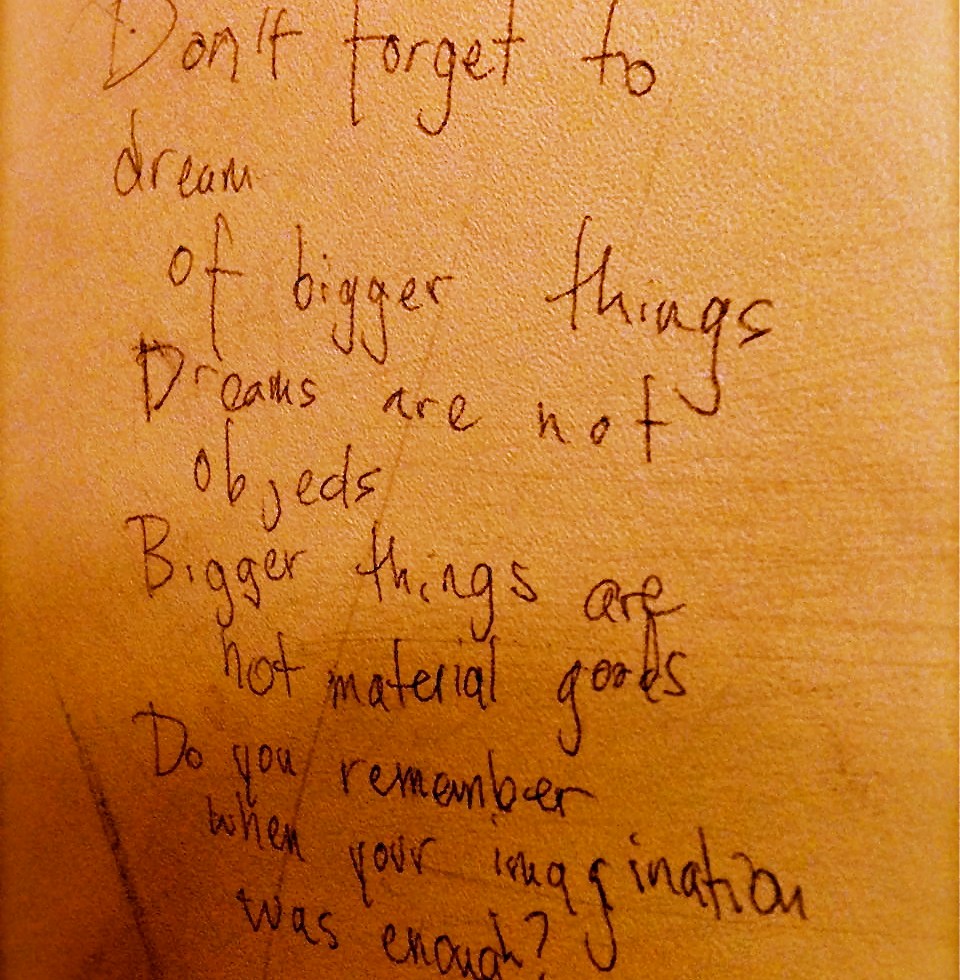 Don't forget to
dream
of bigger things
Dreams are not
objects
Bigger things are
not material goods
Do you remember
when your imagination
was enough?